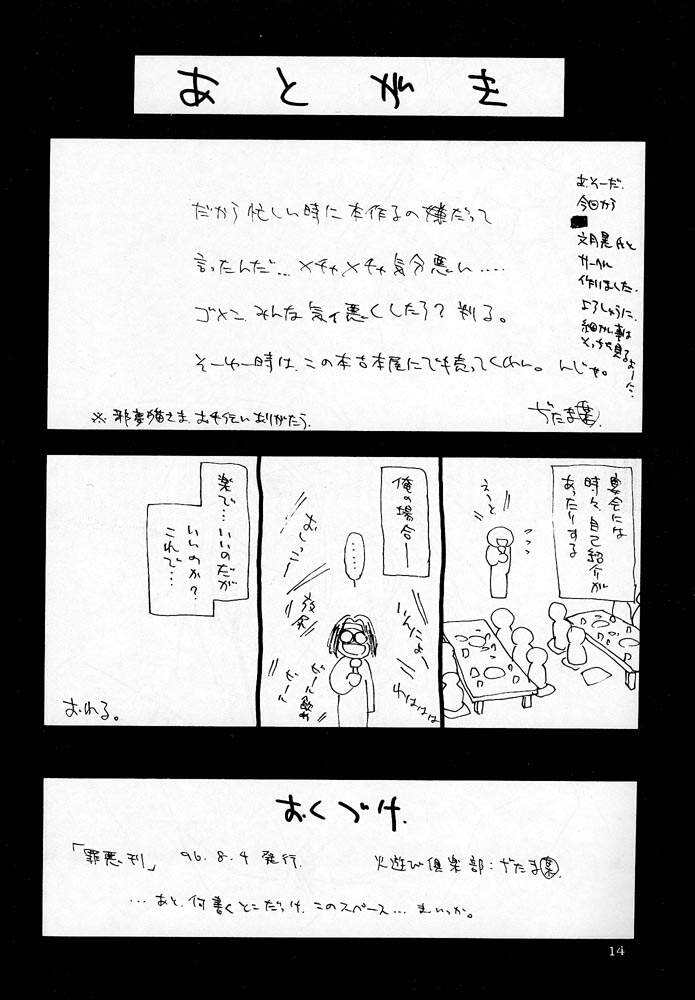 あとがき
だから忙しい時に本作るの嫌だって
言ったんだ…メチャメチャ気分悪い‥‥
ゴメン、みんな気ィ悪くしたろ?判る。
そーゆー時は、この本古本屋にでも売ってくれい。んじゃ。
※邪夢猫さま、お手伝いありがとう。
おそーだ、
今回から
文月晃氏と
サークル
作りました。
よろしゅうに、
細かい事は
そっちを見るよーに、
ぢたま㊝
宴会には
時々、自己紹介が
あったりする
えーと
俺の場合―
‥‥‥
おしっこー
いんにょー
わはははは
ビール飲め
ビール
楽で…いいのだが
いいのか?
これで…
おわる。
おくづけ
「罪悪刊」 96.8.4発行.
火遊び倶楽部:ぢたま
…あと、何書くとこだっけ、このスペース…まいっか。
14